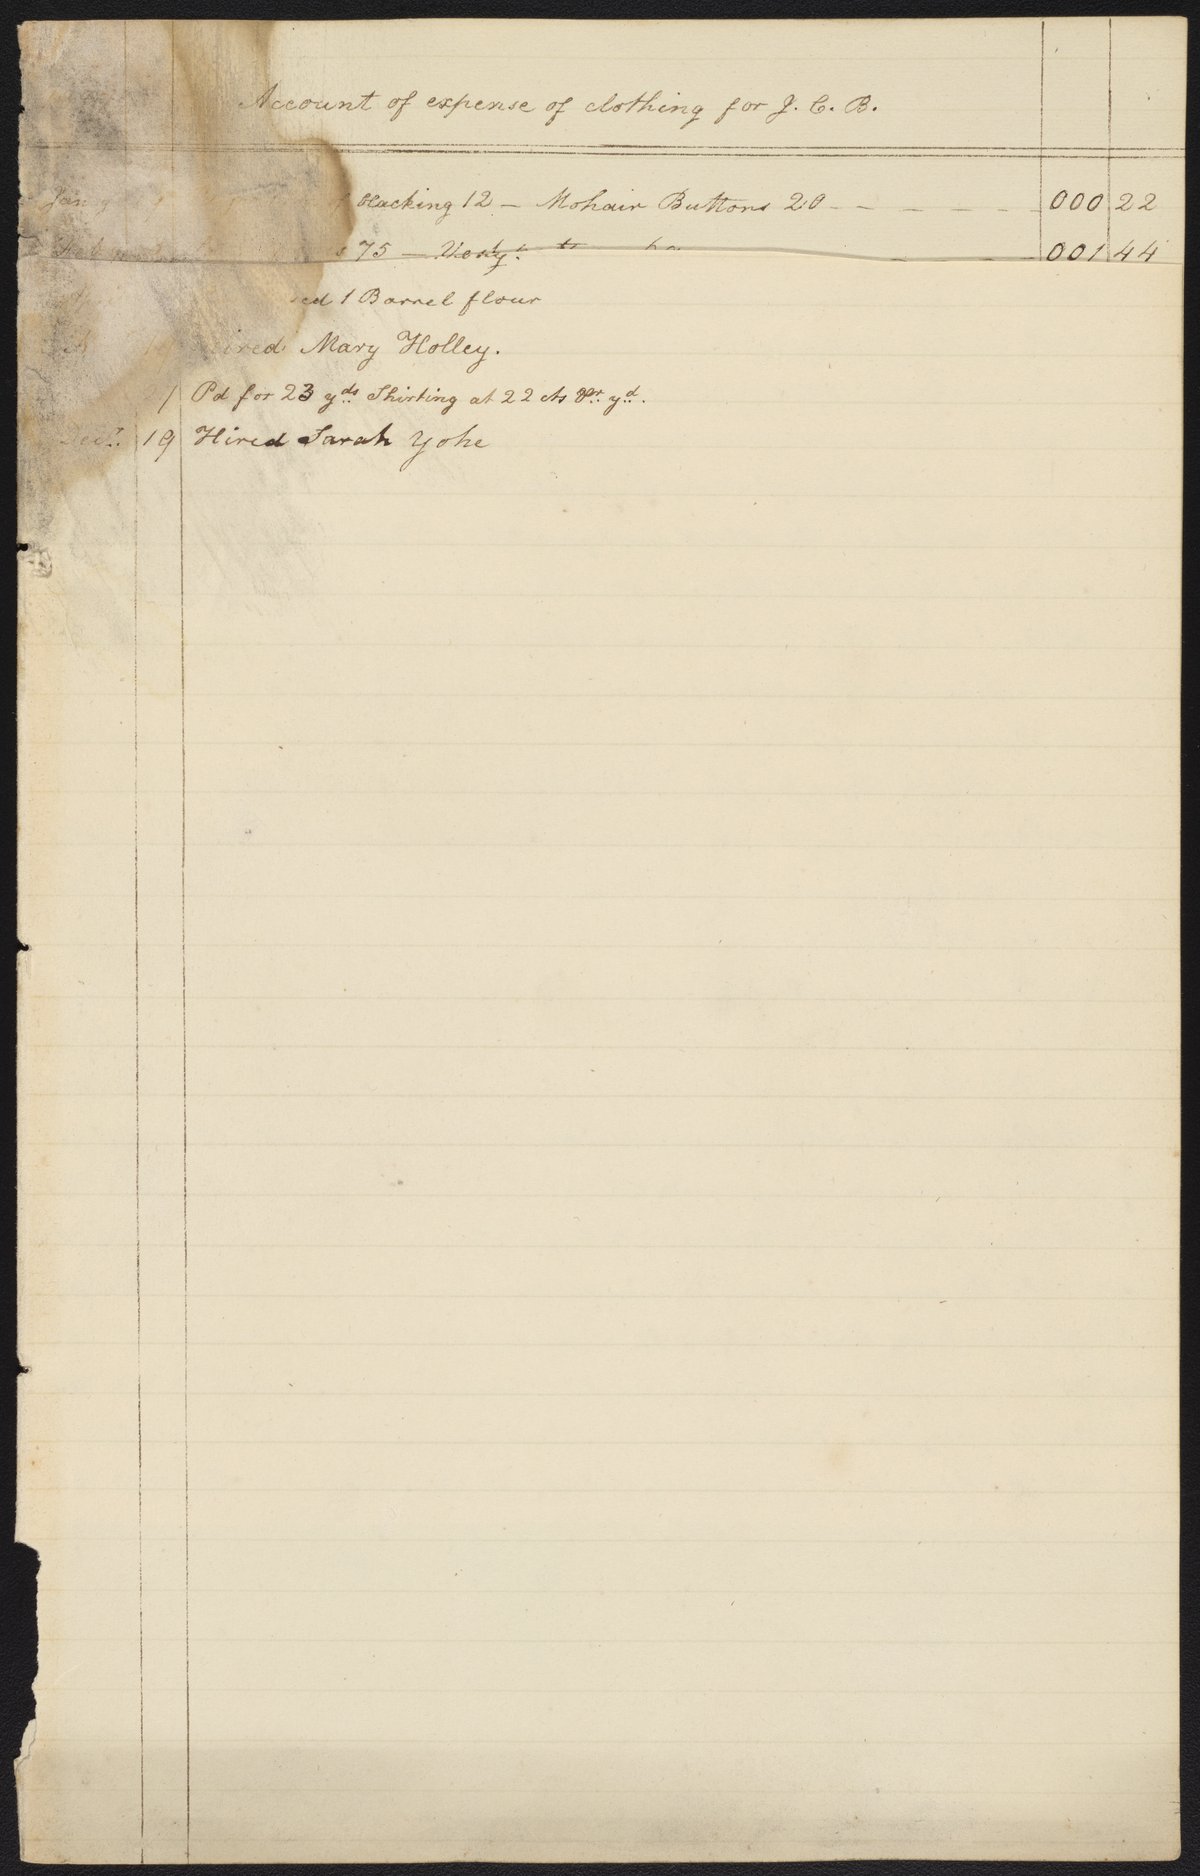 Account of expense of clothing for J. C. B.
blacking 12 — Mohair Buttons 20 — — — — — — 000 22
75 — — — 001 44
1 Barrel flour
Hired Mary Holley.
21 Pd for 23 yds Shirting at 22 cts Pr yd.
19 Hired Sarah Yohe